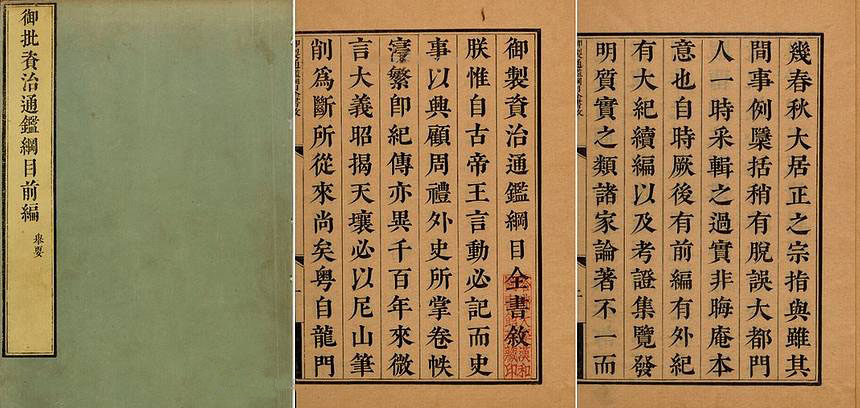 御批資治通鑑綱目前編
舉要
御製資治通鑑綱目全書敘
朕惟自古帝王言動必記而史
事以興顧周禮外史所掌卷帙
寖繁卽紀傳亦異千百年來微
言大義昭揭天壤必以尼山筆
削爲斷所從來尚矣粵自龍門
御製通鑑綱目全書敘
幾春秋大居正之宗指與雖其
間事例櫽括稍有脫誤大都門
人一時采輯之過實非晦庵本
意也自時厥後有前編有外紀
有大紀續編以及考證集覽發
明質實之類諸家論著不一而
御製通鑑綱目全書敘